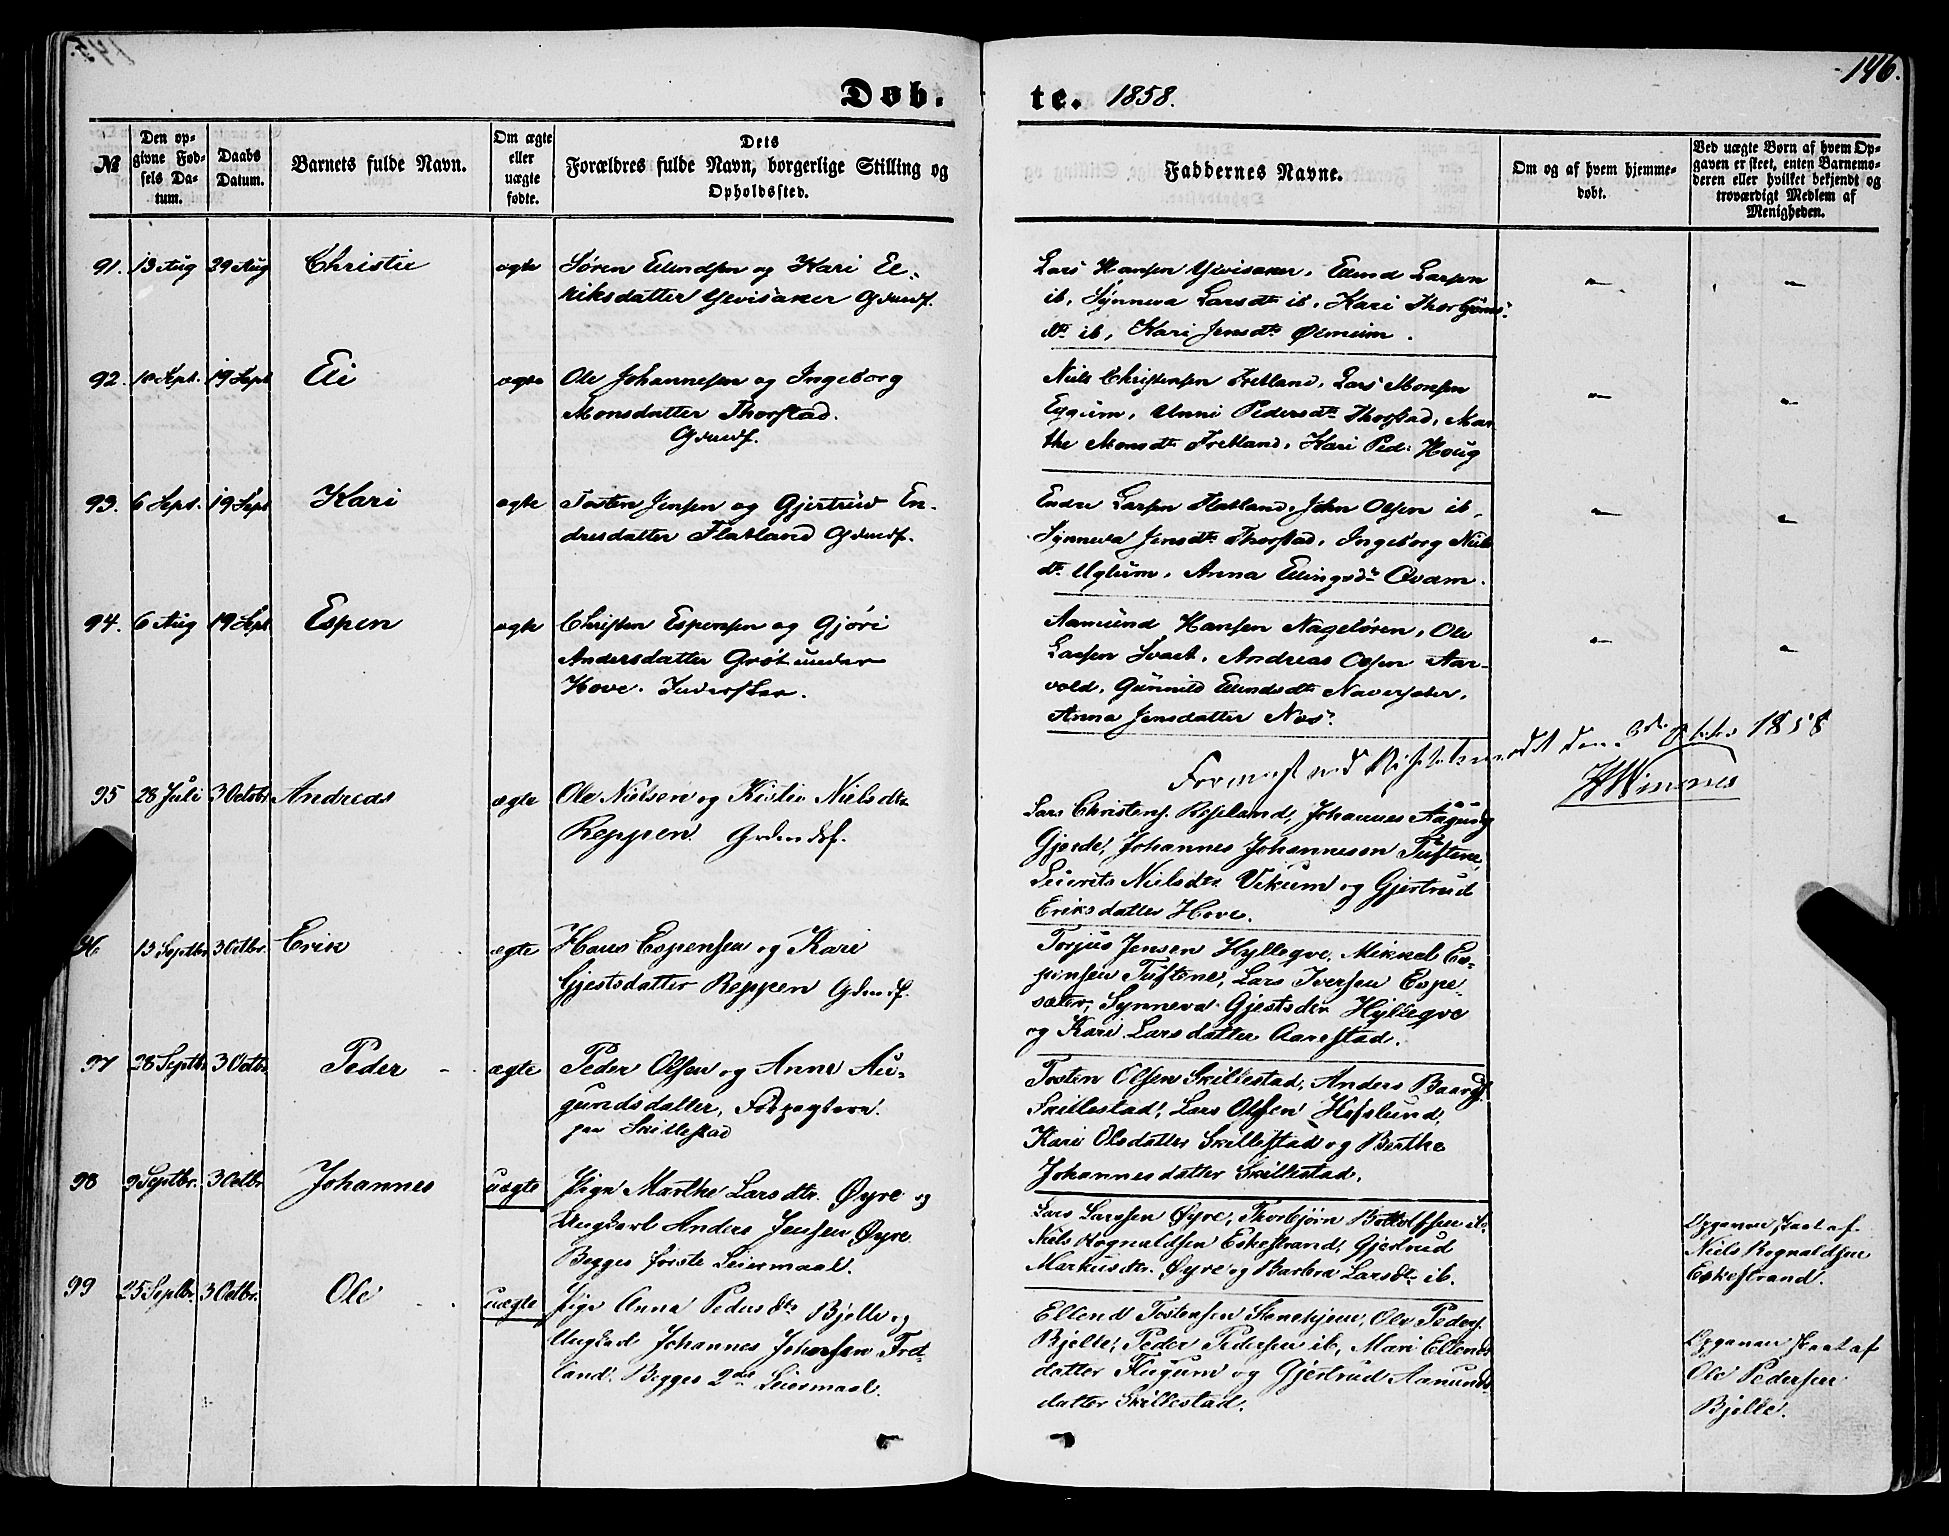 146.
Døb-
te. 1858.
№
Den op-
givne Fød-
sels Da-
tum.
Daabs
Datum.
Barnets fulde Navn.
Om ægte
eller
uægte
fødte.
Dets
Forældres fulde Navn, borgerlige Stilling og
Opholdssted.
Faddernes Navne.
Om og af hvem hjemme-
døbt.
Ved uægte Børn af hvem Op-
gaven er skeet, enten Barnemo-
deren eller hvilket bekjendt og
troværdigt Medlem af
Menigheden.
91. 13 Aug 29 Aug Christie ægte
Søren Ellendsen og Kari El-
riksdatter Yevisaker Gdmdf.
Lars Hansen Yevisaker, Ellend Larsen
ib, Synneva Larsdtr ib, Kari Thorbjørns
dtr ib, Kari Jensdtr Ølmeim.
92. 18 Sept. 19 Sept Eli ægte
Ole Johannesen og Ingeborg
Monsdatter Thorstad.
Gdmdf.
Niels Christensen Fretland, Lars Monsen
Eggum, Unni Pedersdtr Thorstad, Mar-
the Monsdtr Fretland, Kari Ped: Houg
93. 6 Sept. 19 Sept Kari ægte
Tosten Jensen og Gjertrud En-
dresdatter Flatland Gdmdf.
Endre Larsen Flatland, John Olsen ib,
Synneva Jensdtr Thorstad, Ingeborg Niels
dtr Uglum, Anna Ellingsdtr Qvam.
94. 6 Aug 19 Sept Espen ægte
Christen Espensen og Gjøri
Andersdatter Grøt under
Hove. Inderster.
Aamund Hansen Nageløren, Ole
Larsen Svart, Andreas Olsen Aar-
vold, Gunnild Ellendsdtr Naversæter,
Anna Jensdatter Næs.
1858
95 28 Juli 3 Octobr Andreas ægte
Ole Nielsen og Kristie Nielsdtr
Reppen. Grdmdsf.
Lars Christens. Röseland, Johannes Aagunds
Gjerde, Johannes Johannesen Tuftene,
Seierits Nielsdtr Vikum og Gjertrud
Eriksdatter Hove.
96 13 Septbr 3 Octbr. Erik ægte
Hans Espensen og Kari
Gjestsdatter Reppen Gdmdf.
Torjus Jensen Hylleqve, Mikkel Es-
pensen Tuftene, Lars Iversen Espe-
sæter, Synneva Gjestsdtr Hylleqve
og Kari Larsdatter Aarestad.
97 28 Septbr 3 Octbr Peder ægte
Peder Olsen og Anna Au-
gundsdatter,
paa Skillestad
Tosten Olsen Skillestad, Anders Baards.
Skillestad, Lars Olsen Hæslund,
Kari Olsdatter Skillestad og Berthe
Johannesdatter Skillestad.
98 9 Septbr. 3 Octbr Johannes uægte
Pige Marthe Larsdtr. Øyre og
Ungkarl Anders Jensen Øyre
Begges første Leiermaal.
Lars Larssen Øyre, Thorbjørn Bottolfsen ib,
Niels Rognaldsen Eskestrand, Gjertrud
Markusdtr. Øyre og Barbra Larsdtr ib.
Opgaven skeet af
Niels Rognaldsen
Eskestrand.
99 25 Septbr. 3 Octbr. Ole uægte
Pige Anna Pedersdtr Bjelle og
Ungkarl Johannes Johansen Fret-
land. Begges 2det Leiermaal.
Ellend Tostensen Stenehjem, Ole Peders.
Bjelle, Peder Pedersen ib, Mari Ellends
datter Flugum og Gjertrud Aamunds
datter Skillestad.
Opgaven skeet af
Ole Pedersen
Bjelle.